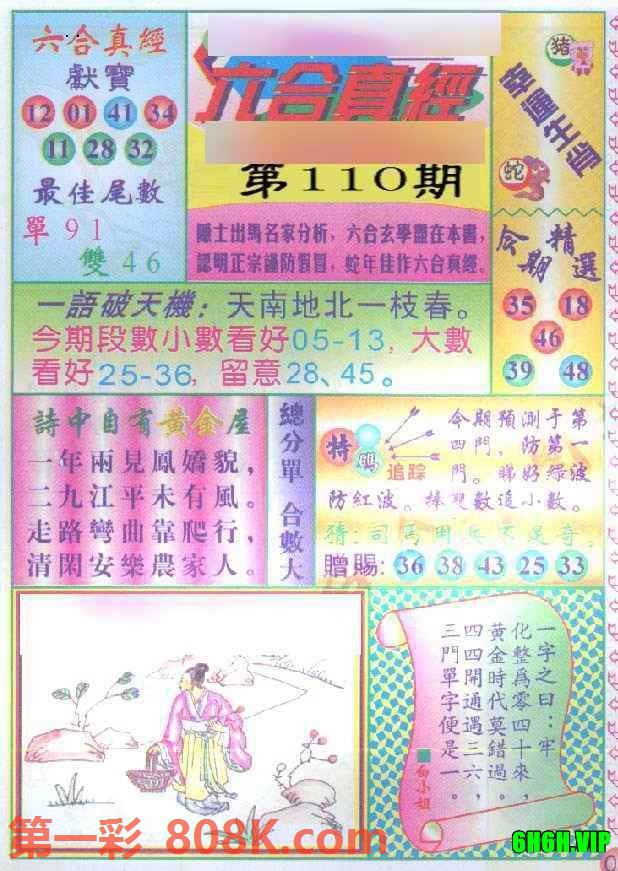 六合真經
獻寶
12 01 41 34
11 28 32
最佳尾數
單91
雙46
六合真經
第110期
隱士出馬名家分析，六合玄學盡在本書，
認明正宗謹防假冒，蛇年佳作六合真經。
豬
蛇
今期精選
35 18
46
39 48
一語破天機：天南地北一枝春。
今期段數小數看好05-13，大數
看好25-36，留意28、45。
詩中自有黃金屋
一年兩見鳳嬌貌，
二九江平未有風。
走路彎曲靠爬行，
清閑安樂農家人。
總分單 合數大
特碼
追踪
今期預測于第
四門，防第一
門。睇好綠波
防紅波。捧雙數追小數。
猜：司馬用兵不足奇。
贈賜：36 38 43 25 33
一字之曰：牢
化整爲零四十來，
黃金時代莫錯過，
四四開通遇三六，
三門單字便是一。
白小姐
第一彩 808K.com
6H6H.VIP